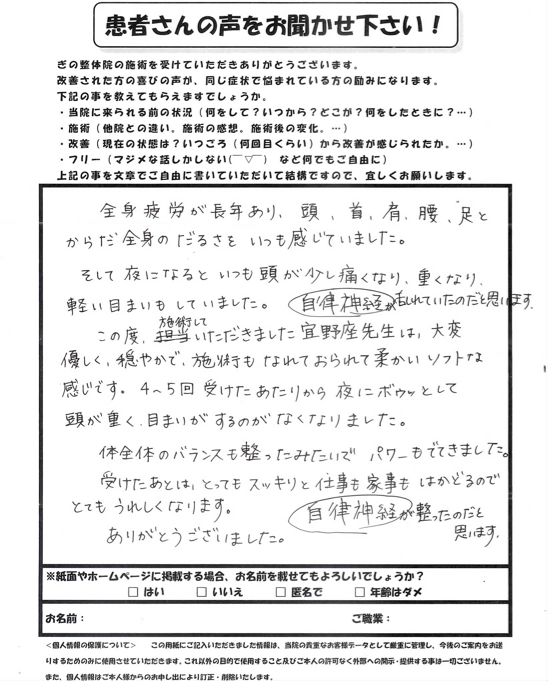 患者さんの声をお聞かせ下さい！
ぎの整体院の施術を受けていただきありがとうございます。
改善された方の喜びの声が、同じ症状で悩まれている方の励みになります。
下記の事を教えてもらえますでしょうか。
・当院に来られる前の状況（何をして？いつから？どこが？何をしたときに？…）
・施術（他院との違い。施術の感想。施術後の変化。…）
・改善（現在の状態は？いつごろ（何回目くらい）から改善が感じられたか。…）
・フリー（マジメな話しかしない(￣▽￣)　など何でもご自由に）
上記の事を文章でご自由に書いていただいて結構ですので、宜しくお願いします。
全身疲労が長年あり、頭、首、肩、腰、足と
からだ全身のだるさをいつも感じていました。
そして夜になるといつも頭が少し痛くなり、重くなり、
軽い目まいもしていました。自律神経が乱れていたのだと思います。
施術して
この度、担当いただきました宜野座先生は、大変
優しく、穏やかで、施術もなれておられて柔かいソフトな
感じです。4～5回受けたあたりから夜にボウッとして
頭が重く、目まいがするのがなくなりました。
体全体のバランスも整ったみたいで パワーもでてきました。
受けたあとは、とってもスッキリと仕事も家事もはかどるので
とてもうれしくなります。自律神経が整ったのだと
思います。
ありがとうございました。
※紙面やホームページに掲載する場合、お名前を載せてもよろしいでしょうか？
□ はい　□ いいえ　□ 匿名で　□ 年齢はダメ
お名前：　ご職業：
＜個人情報の保護について＞　この用紙にご記入いただきました情報は、当院の貴重なお客様データとして厳重に管理し、今後のご案内をお送
りするためのみに使用させていただきます。これ以外の目的で使用すること及びご本人の許可なく外部への開示・提供する事は一切ございません。
また、個人情報はご本人様からのお申し出により訂正・削除いたします。